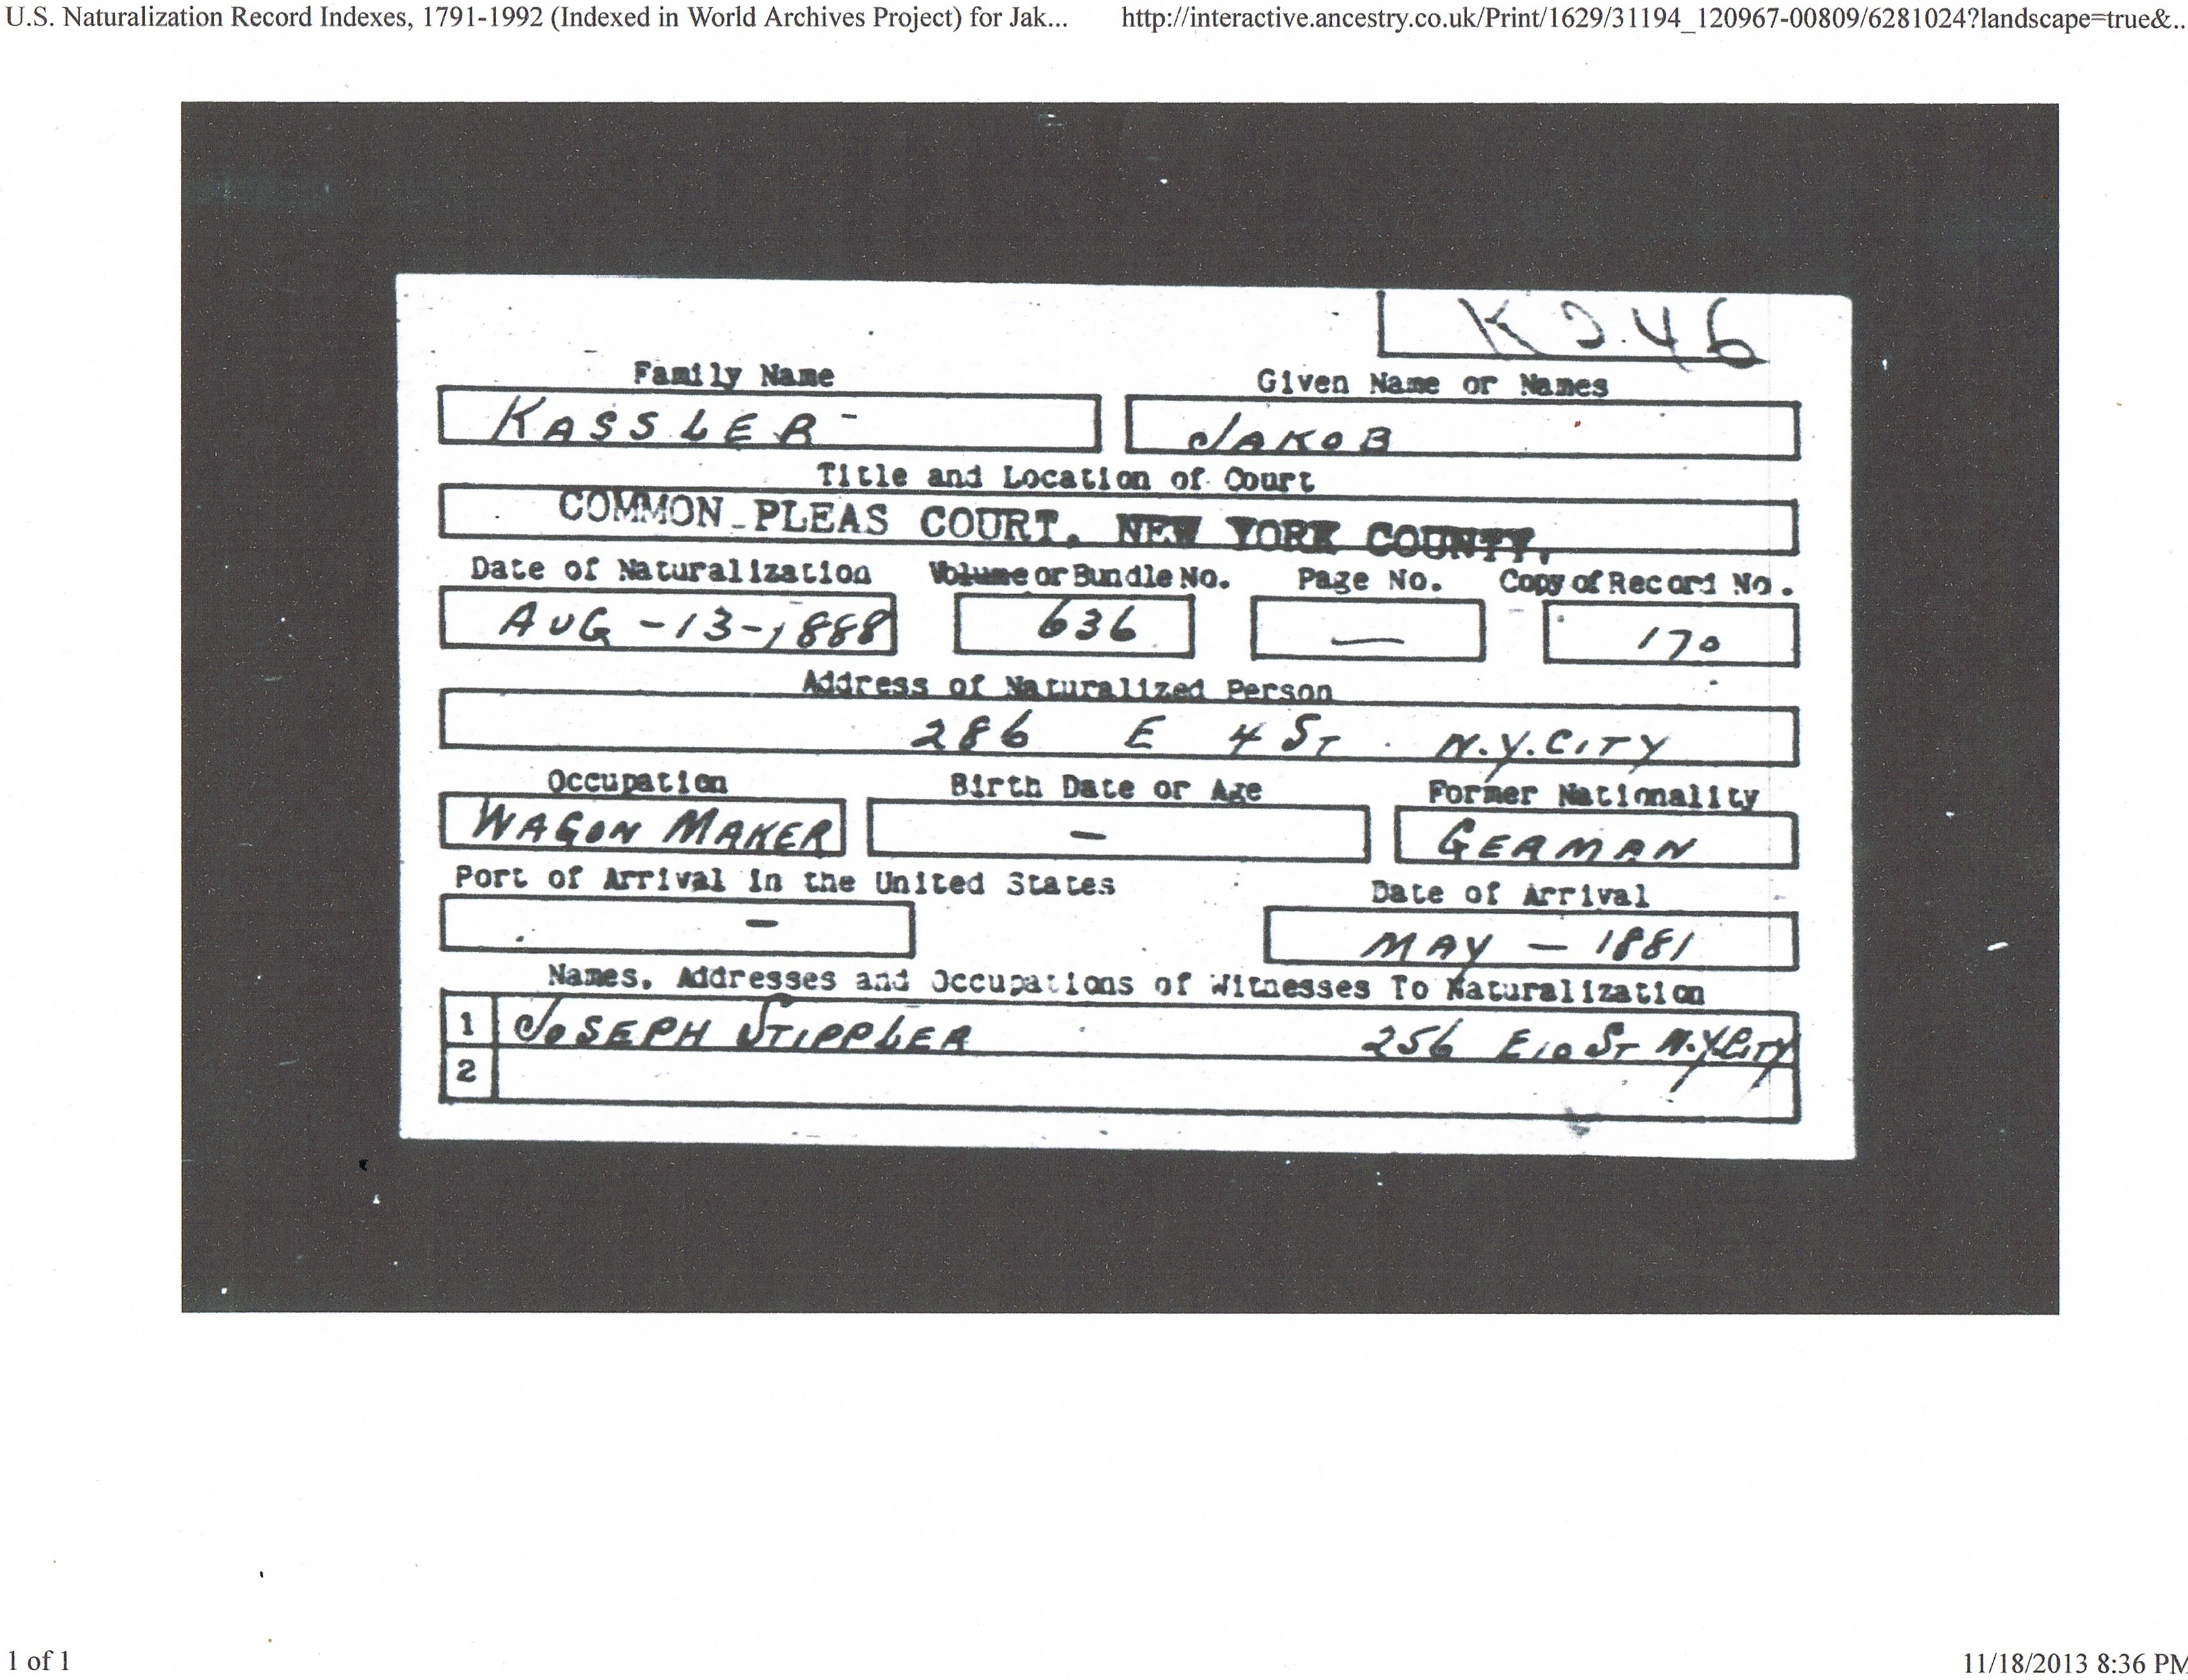 U.S. Naturalization Record Indexes, 1791-1992 (Indexed in World Archives Project) for Jak... http://interactive.ancestry.co.uk/Print/1629/31194_120967-00809/6281024?landscape=true&...
K 246
Family Name Given Name or Names
KASSLER - JAKOB
Title and Location of Court
COMMON PLEAS COURT. NEW YORK COUNTY.
Date of Naturalization Volume or Bundle No. Page No. Copy of Record No.
AUG - 13 - 1888 636 — 170
Address of Naturalized Person
286 E 4 ST. N.Y. CITY
Occupation Birth Date or Age Former Nationality
WAGON MAKER - GERMAN
Port of Arrival in the United States Date of Arrival
- MAY - 1881
Names, Addresses and Occupations of Witnesses To Naturalization
1 JOSEPH STIPPLER 256 E 10 ST N.Y. CITY
2
1 of 1 11/18/2013 8:36 PM